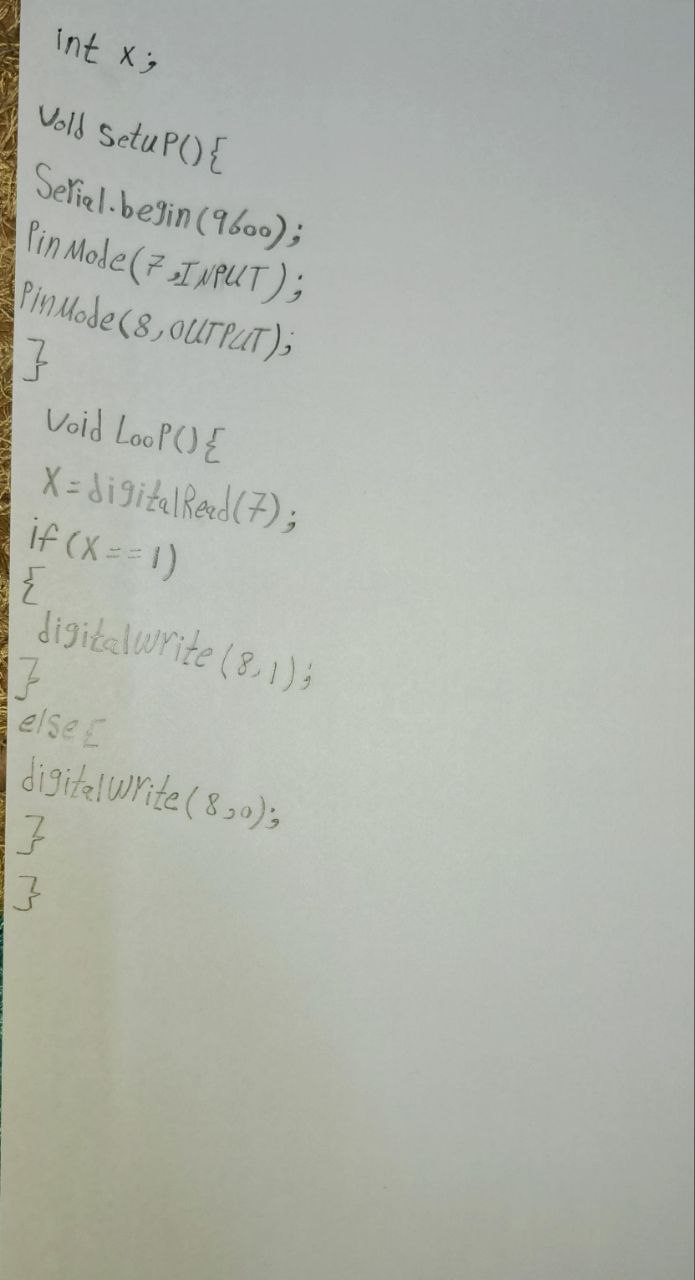 int x;
void setup(){
Serial.begin(9600);
PinMode(7,INPUT);
PinMode(8,OUTPUT);
}
void Loop(){
X=digitalRead(7);
if(X==1)
{
digitalwrite(8,1);
}
else{
digitalwrite(8,0);
}
}